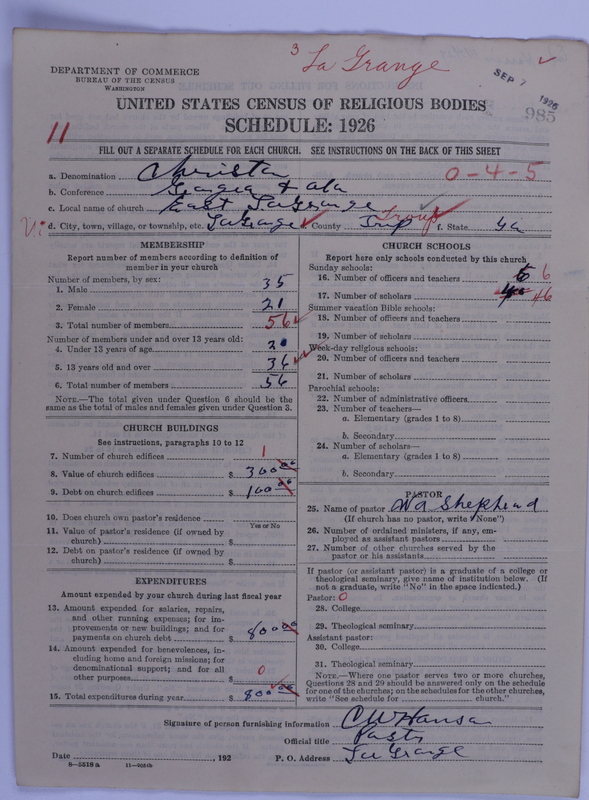 3 La Grange
DEPARTMENT OF COMMERCE
BUREAU OF THE CENSUS
WASHINGTON
SEP 7 1926
985
UNITED STATES CENSUS OF RELIGIOUS BODIES
SCHEDULE: 1926
11
FILL OUT A SEPARATE SCHEDULE FOR EACH CHURCH. SEE INSTRUCTIONS ON THE BACK OF THIS SHEET
a. Denomination Christian 0-4-5
b. Conference Georgia + ala
c. Local name of church East LaGrange
d. City, town, village, or township, etc. LaGrange County Trup Troup f. State Ga
MEMBERSHIP
Report number of members according to definition of
member in your church
Number of members, by sex:
1. Male 35
2. Female 21
3. Total number of members 56
Number of members under and over 13 years old:
4. Under 13 years of age 20
5. 13 years old and over 36
6. Total number of members 56
NOTE.—The total given under Question 6 should be
same as the total of males and females given under Question 3.
CHURCH BUILDINGS
See instructions, paragraphs 10 to 12
7. Number of church edifices 1
8. Value of church edifices $ 300 00
9. Debt on church edifices $ 100 00
10. Does church own pastor's residence
Yes or No
11. Value of pastor's residence (if owned by
church) $
12. Debt on pastor's residence (if owned by
church) $
EXPENDITURES
Amount expended by your church during last fiscal year
13. Amount expended for salaries, repairs,
and other running expenses; for im-
provements or new buildings; and for
payments on church debt $ 800 00
14. Amount expended for benevolences, in-
cluding home and foreign missions; for
denominational support; and for all
other purposes $ 0
15. Total expenditures during year $ 800 00
CHURCH SCHOOLS
Report here only schools conducted by this church
Sunday schools:
16. Number of officers and teachers 6 6
17. Number of scholars 46
Summer vacation Bible schools:
18. Number of officers and teachers
19. Number of scholars
Week-day religious schools:
20. Number of officers and teachers
21. Number of scholars
Parochial schools:
22. Number of administrative officers
23. Number of teachers—
a. Elementary (grades 1 to 8)
b. Secondary
24. Number of scholars—
a. Elementary (grades 1 to 8)
b. Secondary
PASTOR
25. Name of pastor WD Shephead
(If church has no pastor, write "None")
26. Number of ordained ministers, if any, em-
ployed as assistant pastors
27. Number of other churches served by the
pastor or his assistants
If pastor (or assistant pastor) is a graduate of a college or
theological seminary, give name of institution below. (If
not a graduate, write "No" in the space indicated.)
Pastor: 0
28. College
29. Theological seminary
Assistant pastor:
30. College
31. Theological seminary
NOTE.—Where one pastor serves two or more churches,
Questions 28 and 29 should be answered only on the schedule
for one of the churches; on the schedules for the other churches,
write "See schedule for church."
Signature of person furnishing information C W Hanson
Official title Pastr
Date , 192 P. O. Address LaGrange
8-5518a